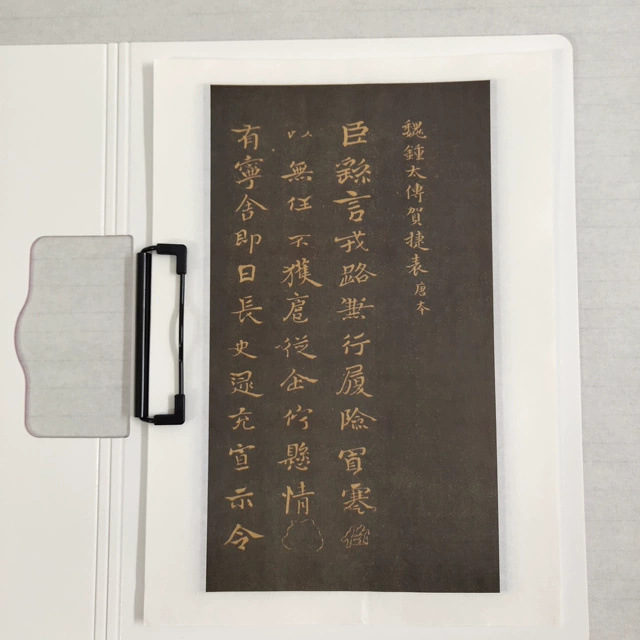 魏鍾太傅賀捷表唐本
臣繇言戎路兼行履險冒寒臣
以無任不獲扈從企佇懸情
有寧舍即日長史逯充宣示令